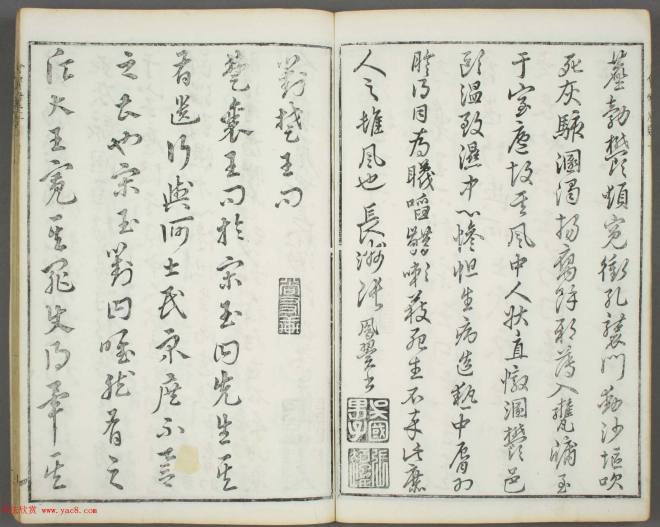 塵勃鬱煩冤衝孔襲門動沙堁吹
死灰駭溷濁揚腐餘邪薄入甕牖至
于室廬故其風中人狀直憞溷鬱邑
毆溫致濕中心慘怛生病造熱中脣爲
胗得目爲蔑啗齰嗽獲死生不卒此庶
人之雄風也 長洲張鳳翼書
對楚王問
楚襄王問於宋玉曰先生其
有遺行與何士民衆庶不譽
之甚也宋玉對曰唯然有之
願大王寬其罪使得畢其
www.yac8.com